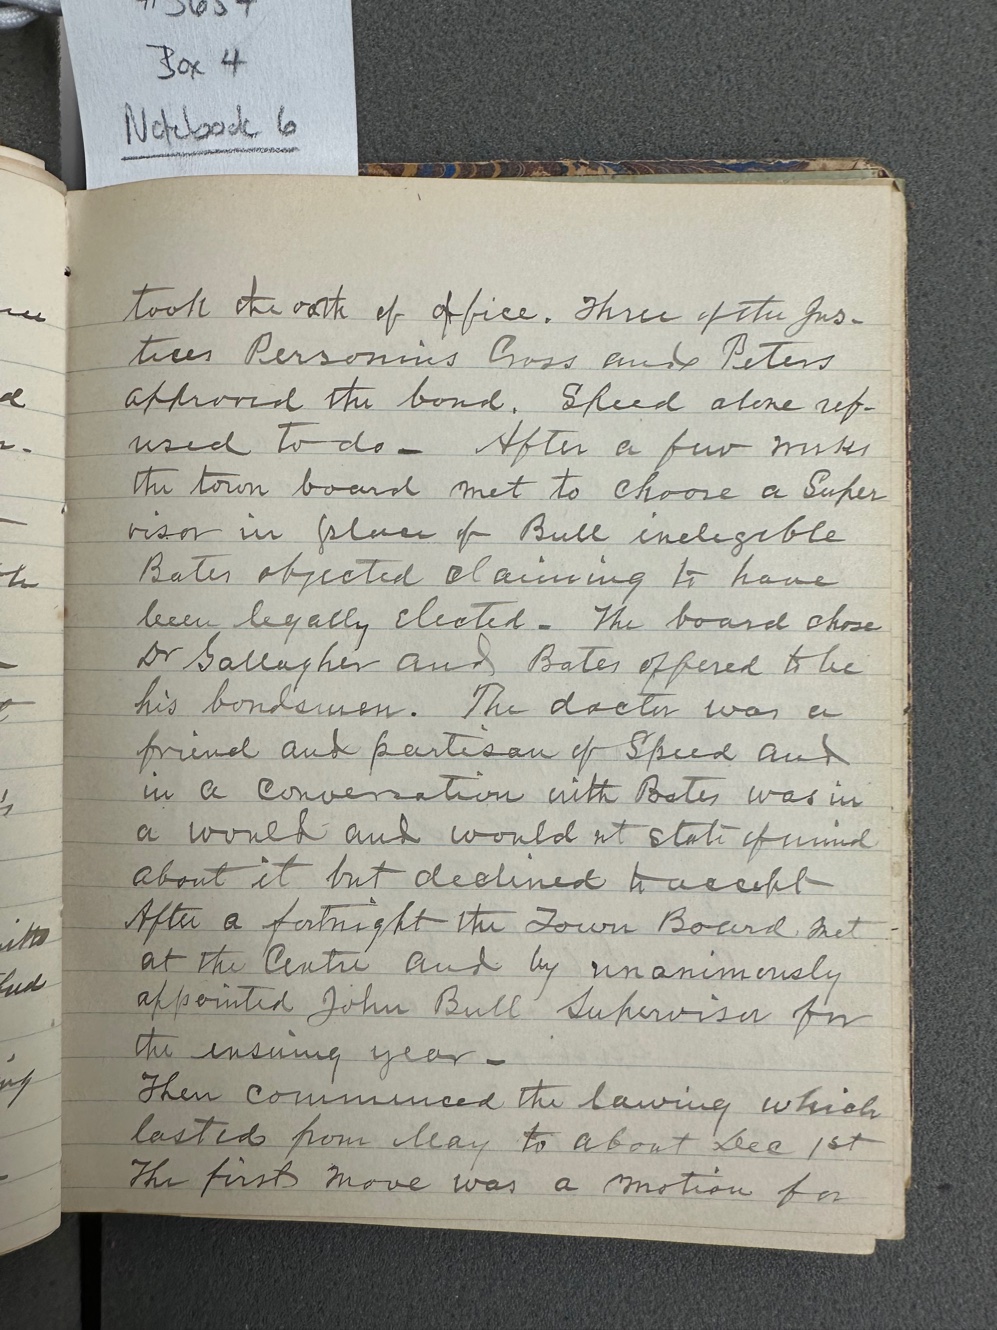 #3657
Box 4
Notebook 6
took the oath of office. Three of the Jus-
tices Personius Cross and Peters
approved the bond. Speed alone ref-
used to do - After a few weeks
the town board met to choose a Super
visor in place of Bull inelegible
Bates objected claiming to have
been legally elected - The board chose
Dr Gallagher and Bates offered to be
his bondsmen. The doctor was a
friend and partisan of Speed and
in a conversation with Bates was in
a would and would nt state of mind
about it but declined to accept
After a fortnight the Town Board met
at the Centre and by unanimously
appointed John Bull Supervisor for
the ensuing year -
Then commenced the lawing which
lasted from May to about Dec 1st
The first move was a motion for